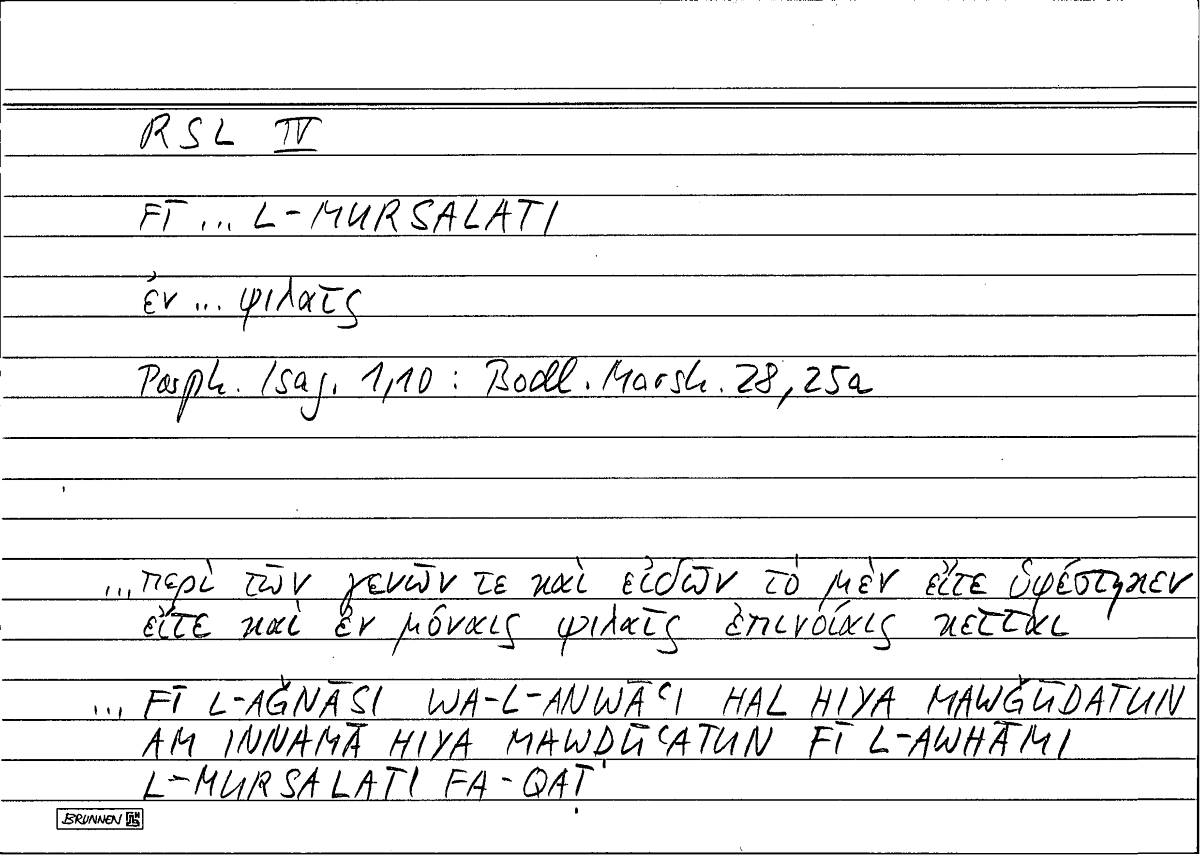 RSL IV
FĪ ... L-MURSALATI
ἐν ... ψιλαῖς
Porph. Isag. 1,10 : Bodl. Marsh. 28,25a
... περὶ τῶν γενῶν τε καὶ εἰδῶν τὸ μὲν εἴτε ὑφέστηκεν
εἴτε καὶ ἐν μόναις ψιλαῖς ἐπινοίαις κεῖται
... FĪ L-AǦNĀSI WA-L-ANWĀʿI HAL HIYA MAWǦŪDATUN
AM INNAMĀ HIYA MAWḌŪʿATUN FĪ L-AWHĀMI
L-MURSALATI FA-QAṬ
BRUNNEN